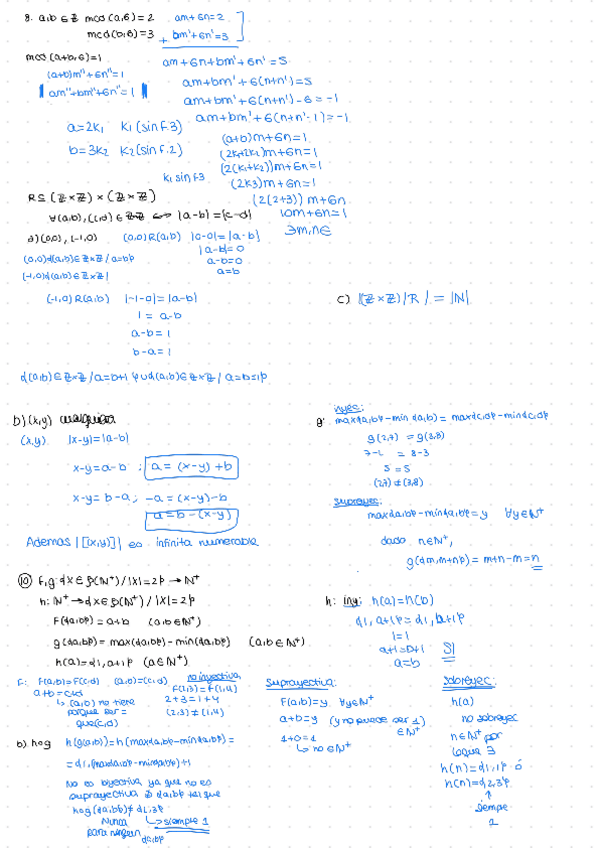 8. a,b ∈ Z mcd(a,6)=2 am+6n=2
mcd(b,6)=3 + bm'+6n'=3
mcd(a+b,6)=1 am+6n+bm'+6n'=5
(a+b)m''+6n''=1
am''+bm''+6n''=1
am+bm'+6(n+n')=5
am+bm'+6(n+n')-6=-1
am+bm'+6(n+n'-1)=-1
a=2k₁ k₁(sin f.3)
b=3k₂ k₂(sin f.2)
k₁ sin f.3
(a+b)m+6n=1
(2k+2k₂)m+6n=1
(2(k₁+k₂))m+6n=1
(2k3)m+6n=1
(2(2+3))m+6n
10m+6n=1
∃m,n∈
R⊆(Z×Z)×(Z×Z)
∀(a,b),(c,d)∈Z×Z ⟺ |a-b|=|c-d|
a) (0,0),(-1,0) (0,0)R(a,b) |0-0|=|a-b|
|a-b|=0
a-b=0
a=b
(0,0){(a,b)∈Z×Z/a=b}
(-1,0){(a,b)∈Z×Z/
(-1,0)R(a,b) |-1-0|=|a-b|
1=a-b
a-b=1
b-a=1
c) |(Z×Z)/R|=|N|
{(a,b)∈Z×Z/a=b+1}∪{(a,b)∈Z×Z/a=b=1}
b) (x,y) cualquiera
(x,y) |x-y|=|a-b|
x-y=a-b; a=(x-y)+b
x-y=b-a; -a=(x-y)-b
a=b-(x-y)
Ademas |[(x,y)]| es infinita numerable
g: inyec:
max{a,b}-min{a,b}=max{c,d}-min{c,d}
g(2,7)=g(3,8)
7-2=8-3
5=5
(2,7)≠(3,8)
suprayec:
max{a,b}-min{a,b}=y ∀y∈N⁺
dado n∈N⁺,
g({m,m+n})=m+n-m=n
10 f,g:{X∈P(N⁺)/|X|=2}→N⁺
h:N⁺→{X∈P(N⁺)/|X|=2}
f({a,b})=a+b (a,b∈N⁺)
g({a,b})=max({a,b})-min({a,b}) (a,b∈N⁺)
h(a)={1,a+1} (a∈N⁺)
h: iny: h(a)=h(b)
{1,a+1}={1,b+1}
1=1
a+1=b+1 SI
a=b
f: f(a,b)=f(c,d) (a,b)=(c,d)
a+b=c+d
(a,b) no tiene
porque ser =
que(c,d)
no inyectiva
f(2,3)=f(1,4)
2+3=1+4
(2,3)≠(1,4)
Suprayectiva:
f(a,b)=y ∀y∈N⁺
a+b=y (y no puede ser 1)
∈N⁺
1+0=1
no∈N⁺
Sobreyec:
h(a)
no sobreyec
n∈N⁺ por
h(n)={1,1} ó
h(n)={2,3}
↑
siempre
1
b) hog h(g(a,b))=h(max{a,b}-min{a,b})=
={1,(max{a,b}-min{a,b})+1}
No es biyectiva ya que no es
suprayectiva ∄{a,b} tal que
hog({a,b})≠{2,3}
Nunca → siempre 1
para ningun {a,b}